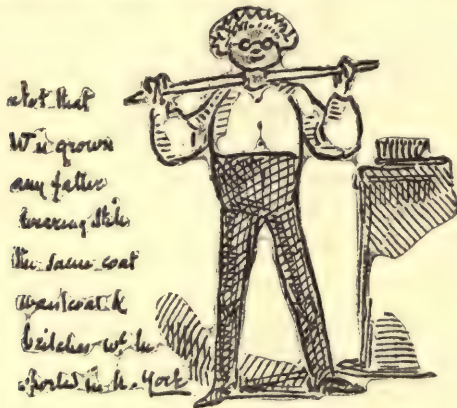 not that
W is grown
any fatter
wearing still
the same coat
waistcoat &
britches wh. he
sported in N. York